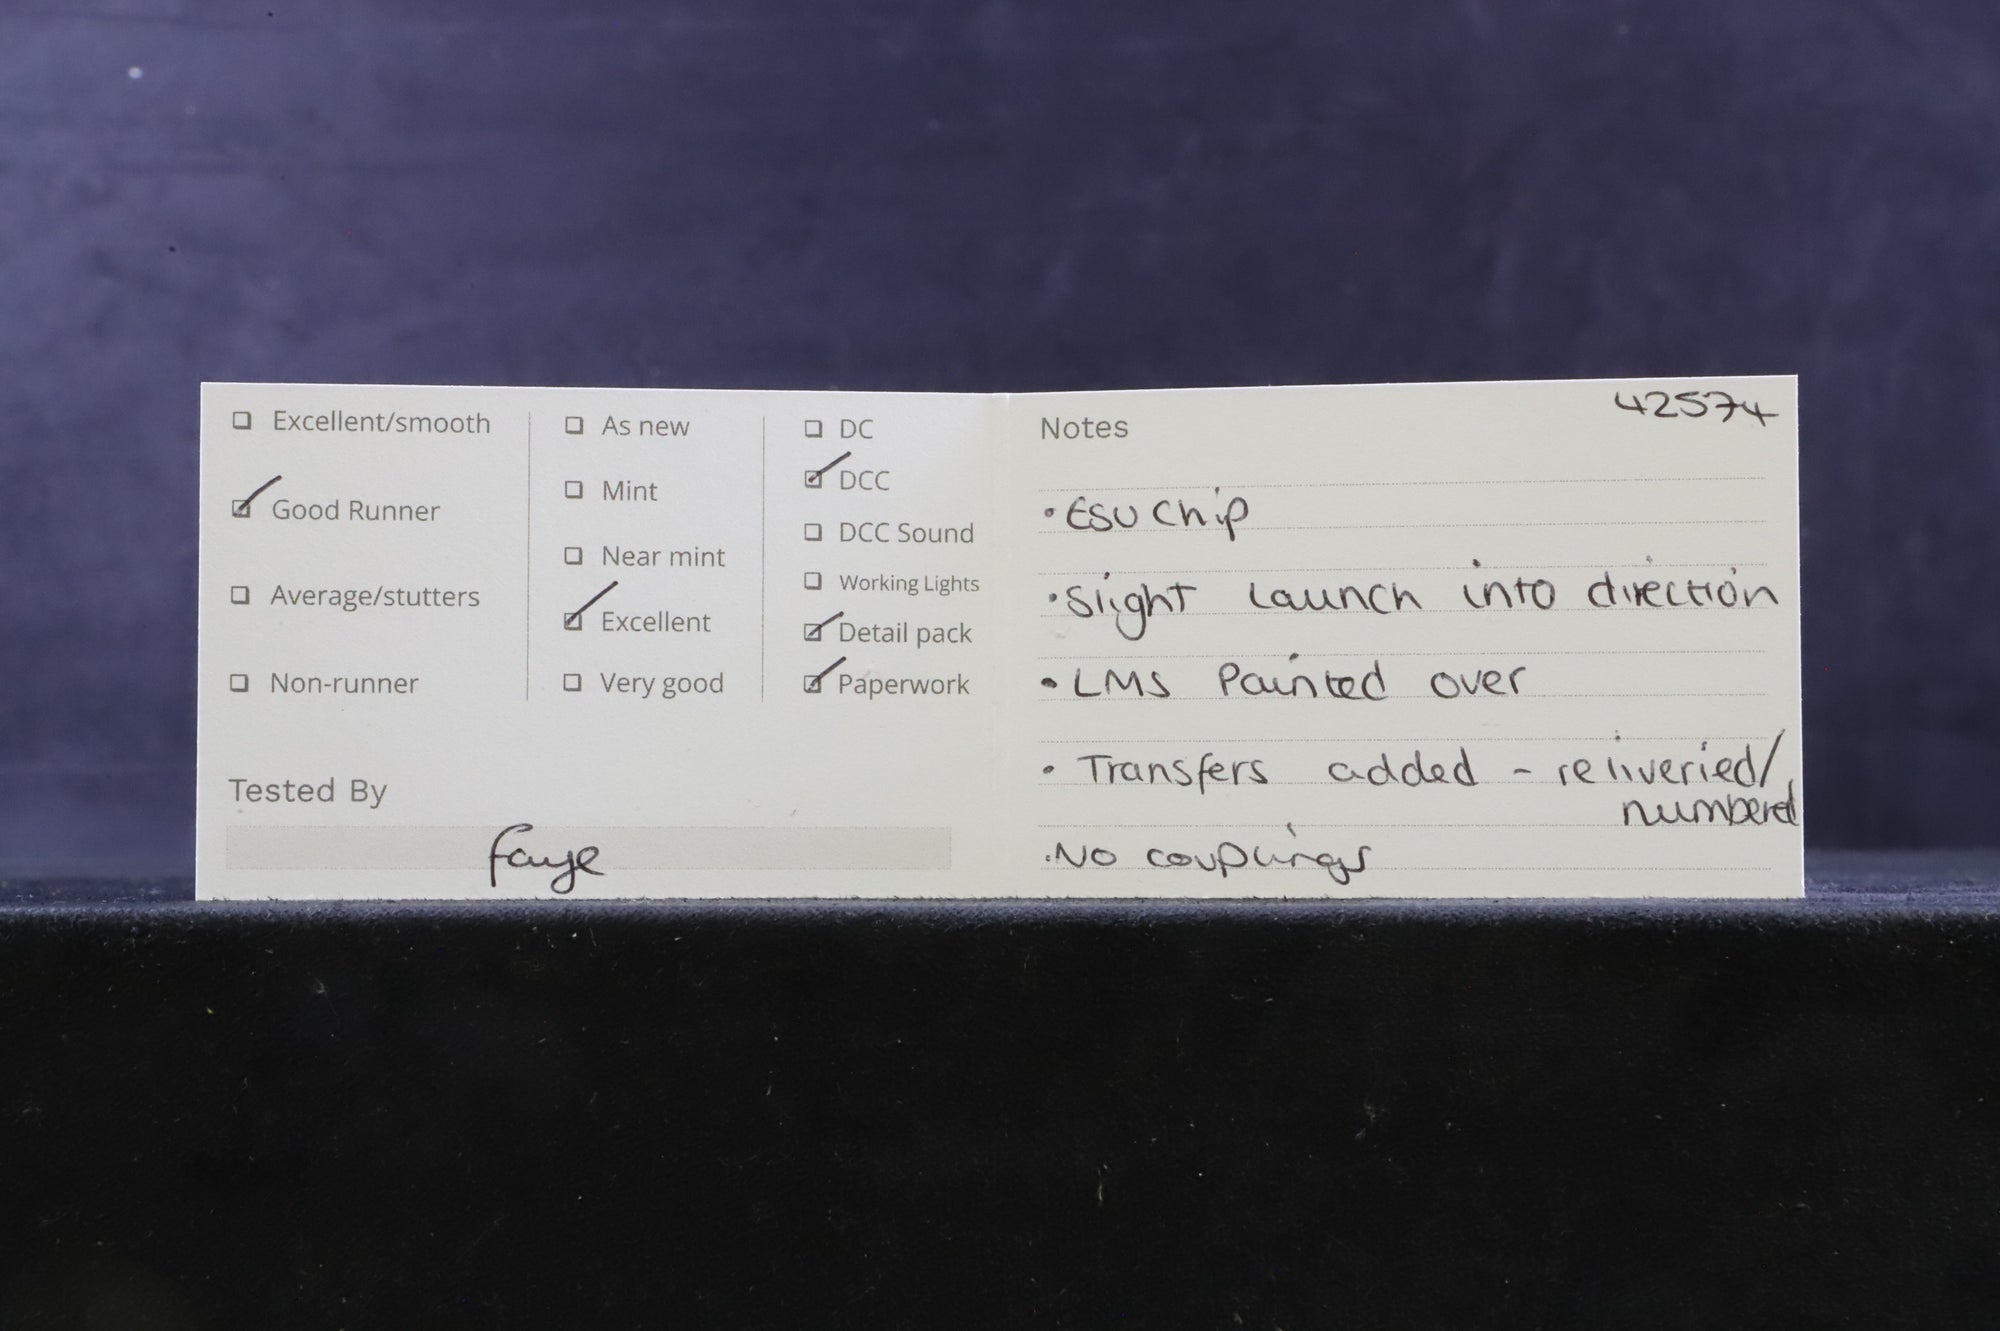 ☐ Excellent/smooth
☑ Good Runner
☐ Average/stutters
☐ Non-runner
☐ As new
☐ Mint
☐ Near mint
☑ Excellent
☐ Very good
☐ DC
☑ DCC
☐ DCC Sound
☐ Working Lights
☑ Detail pack
☑ Paperwork
Tested By
Faye
Notes
42574
• ESU Chip
• Slight Launch into direction
• LMS Painted over
• Transfers added - reliveried/
numbered
• No couplings